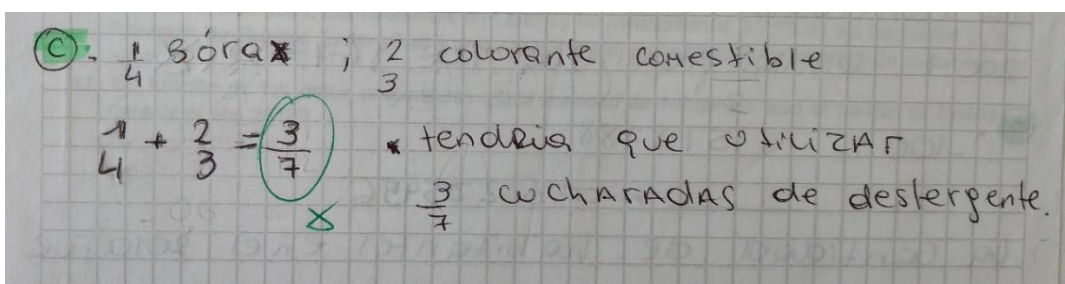 C. 1/4 Bórax ; 2/3 colorante comestible
1/4 + 2/3 = 3/7 • tendria que utilizar
x 3/7 cucharadas de destergente.